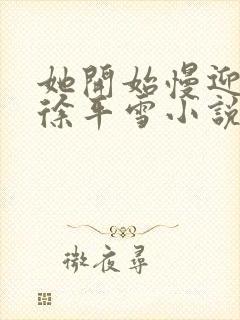 她開始慢迎
徐年雪小說
微夜尋